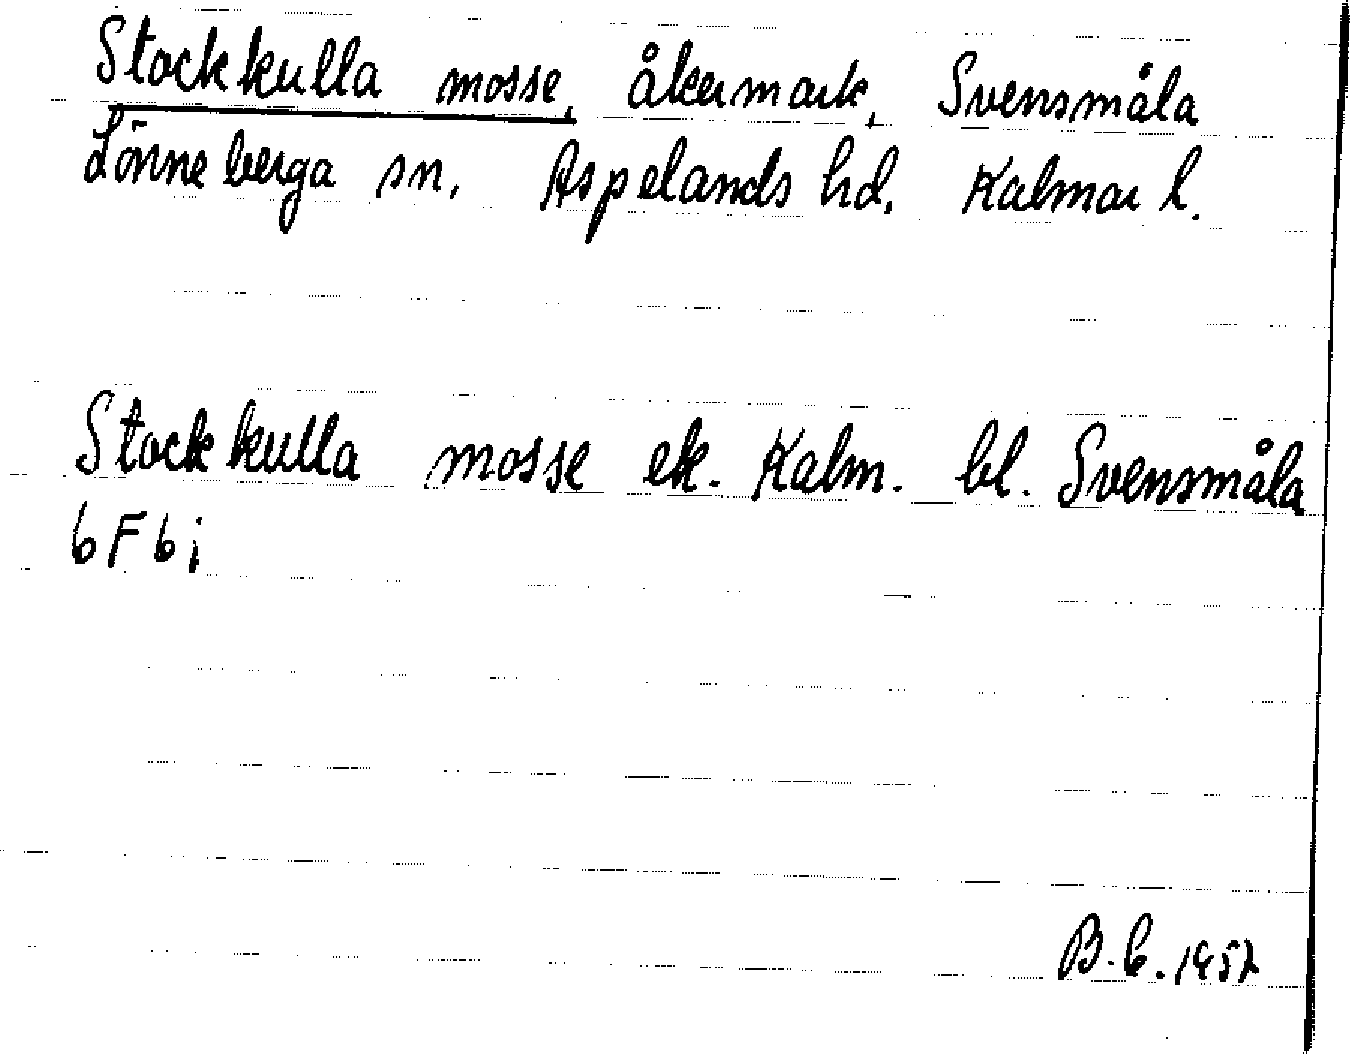 Stockkulla mosse, åkermark, Svensmåla
Lönneberga sn. Aspelands hd. Kalmar l.
Stockkulla mosse ek. Kalm. bl. Svensmåla
6F6i
B.E. 1952